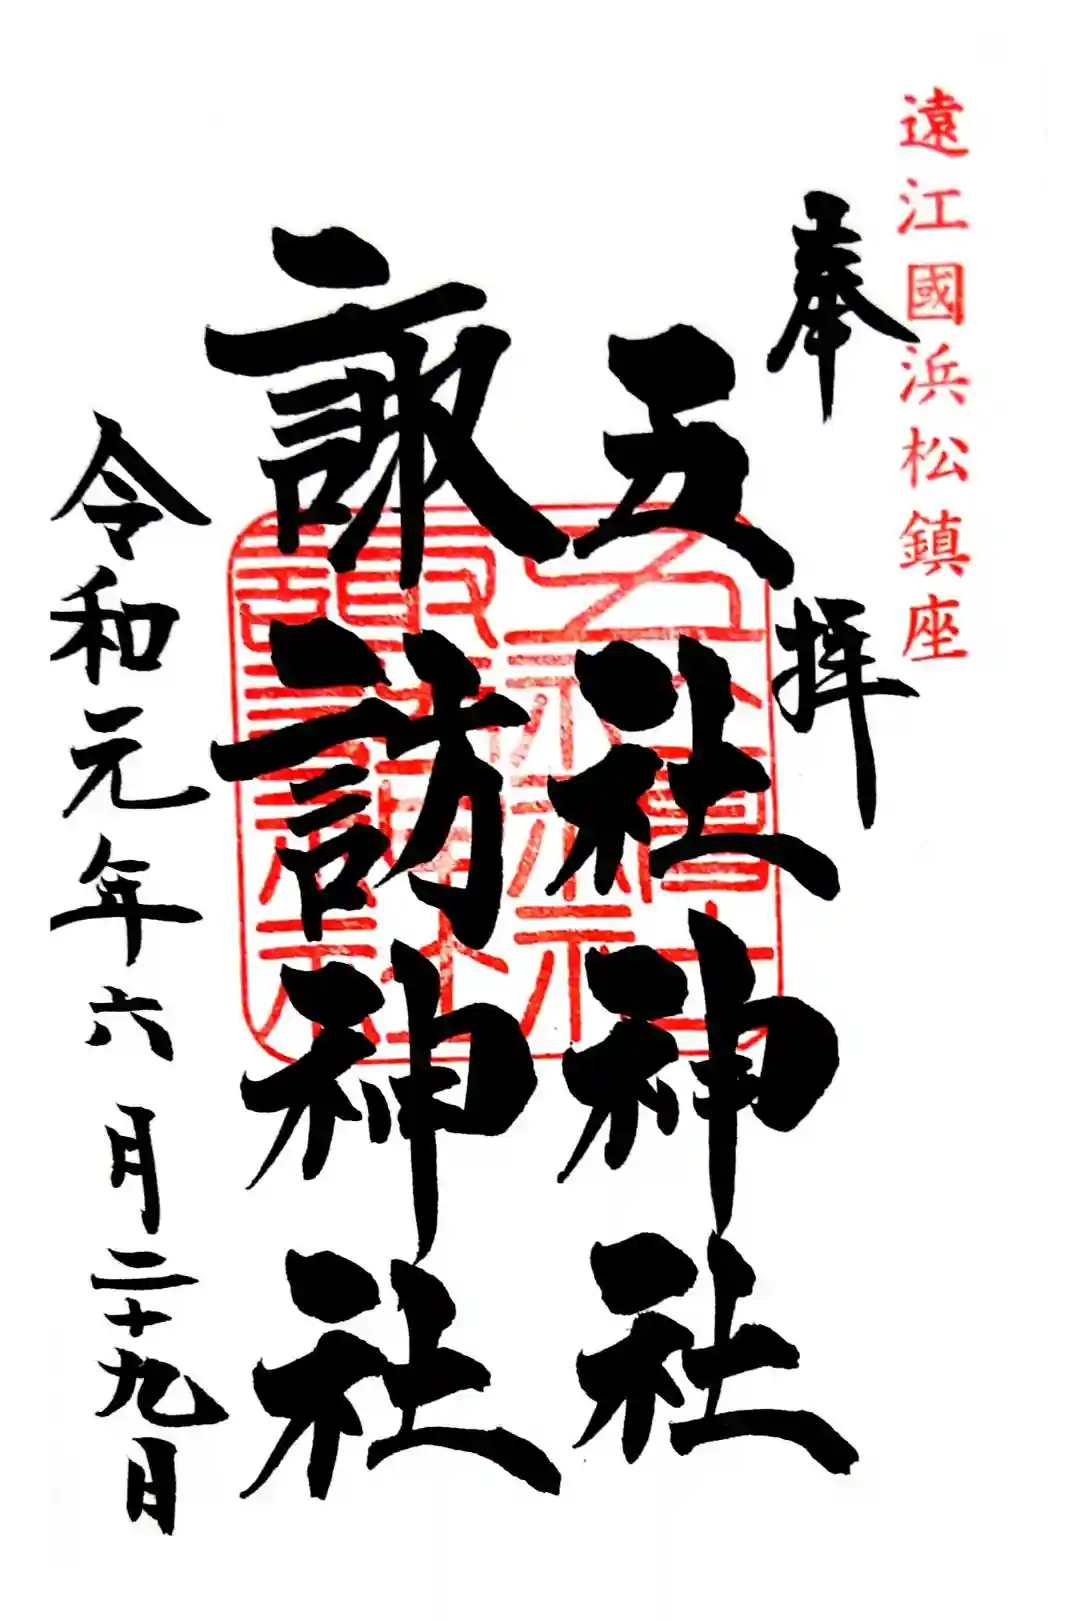 遠江國浜松鎮座
奉拝
五社神社
諏訪神社
令和元年六月二十九日